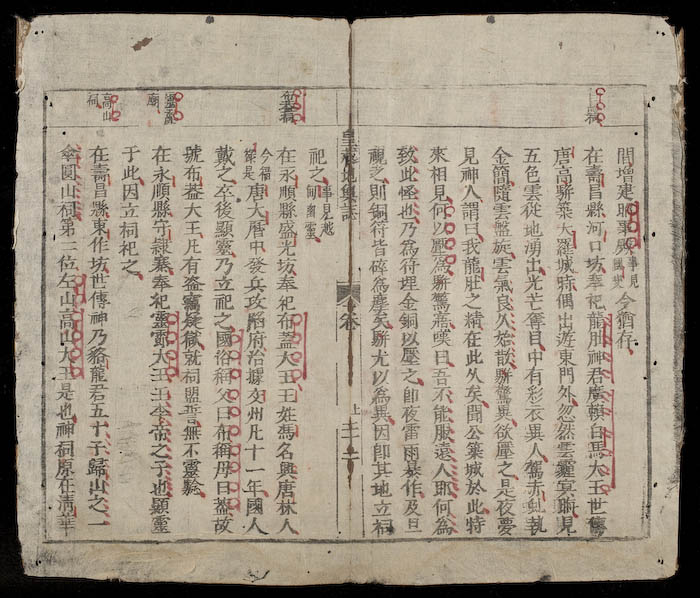 間增建 殿事見國史今猶存
在壽昌縣河口坊奉祀龍肚神君廣禎白馬大王世傳
唐高駢築大羅城時偶出遊東門外忽然雲霧冥晦見
五色雲從地湧出光芒奪目中有彩衣異人駕赤虬執
金簡隨雲盤旋雲氣良久始散駢驚異欲壓之是夜夢
見神人謂曰我龍肚之精在此久矣聞公築城於此特
來相見何以壓為駢驚寤嘆曰吾不能服遠人耶何為
致此怪也乃為符埋金銅以壓之即夜雷雨暴作及旦
視之則銅符皆碎為塵矣駢尤以為異因即其地立祠
皇越地輿誌 卷 上 二十
祀之事見越甸幽靈
在永順縣盛光坊奉祀布蓋大王王姓馮名興唐林人
今福祿是唐大曆中發兵攻陷府治據交州凡十一年國人
戴之卒後顯靈乃立祀之國俗稱父曰布稱母曰蓋故
號布蓋大王凡有盜竊疑獄就祠盟誓無不靈驗
靈 廟
在永順縣守隸寨奉祀靈 大王王李帝之子也顯靈
于此因立祠祀之
高山祠
在壽昌縣東作坊世傳神乃貉龍君五十子歸山之一
傘圓山祠第二位左山高山大王是也神祠原在清華